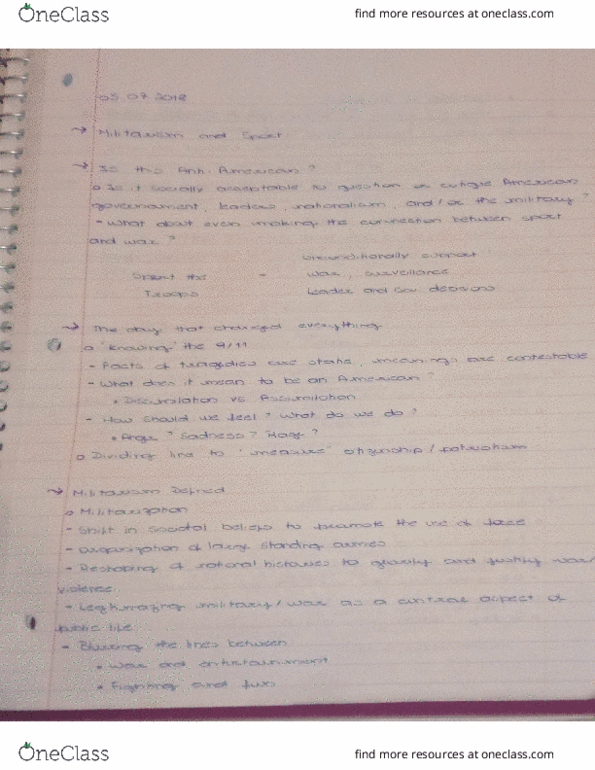 OneClass
find more resources at oneclass.com
05.07.2018
→ Militarism and Sport
→ Is this Anti-American?
o Is it socially acceptable to question or critique American
government, leaders, nationalism, and/or the military?
- What about even making the connection between sport
and war?
Support the - unconditionally support
Troops war, surveillance
leader and Gov. decisions
→ The day that changed everything
o "knowing" the 9/11
- Facts of tragedies are stable, meanings are contestable
- What does it mean to be an American?
• Dissimilation vs Assimilation
- How should we feel? What do we do?
• Anger? Sadness? Rage?
o Dividing line to "measure" citizenship/patriotism
→ Militarism Defined
o Militarization
- Shift in societal beliefs to promote the use of force
- Organization of large standing armies
- Reshaping of national histories to glorify and justify war/
violence
- Legitimazing military/war as a central aspect of
public life
- Blurring the lines between
• War and entertainment
• Fighting and fun
OneClass
find more resources at oneclass.com